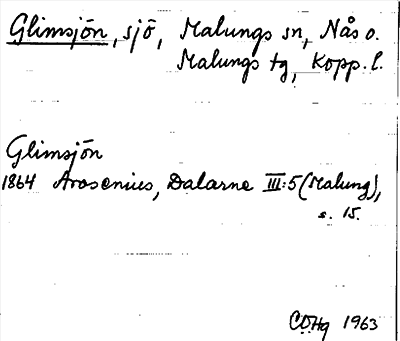 Glimsjön, sjö, Malungs sn, Nås o.
Malungs tg, Kopp. l.
Glimsjön
1864 Arosenius, Dalarne III:5 (Malung),
s. 15.
CDHg 1963